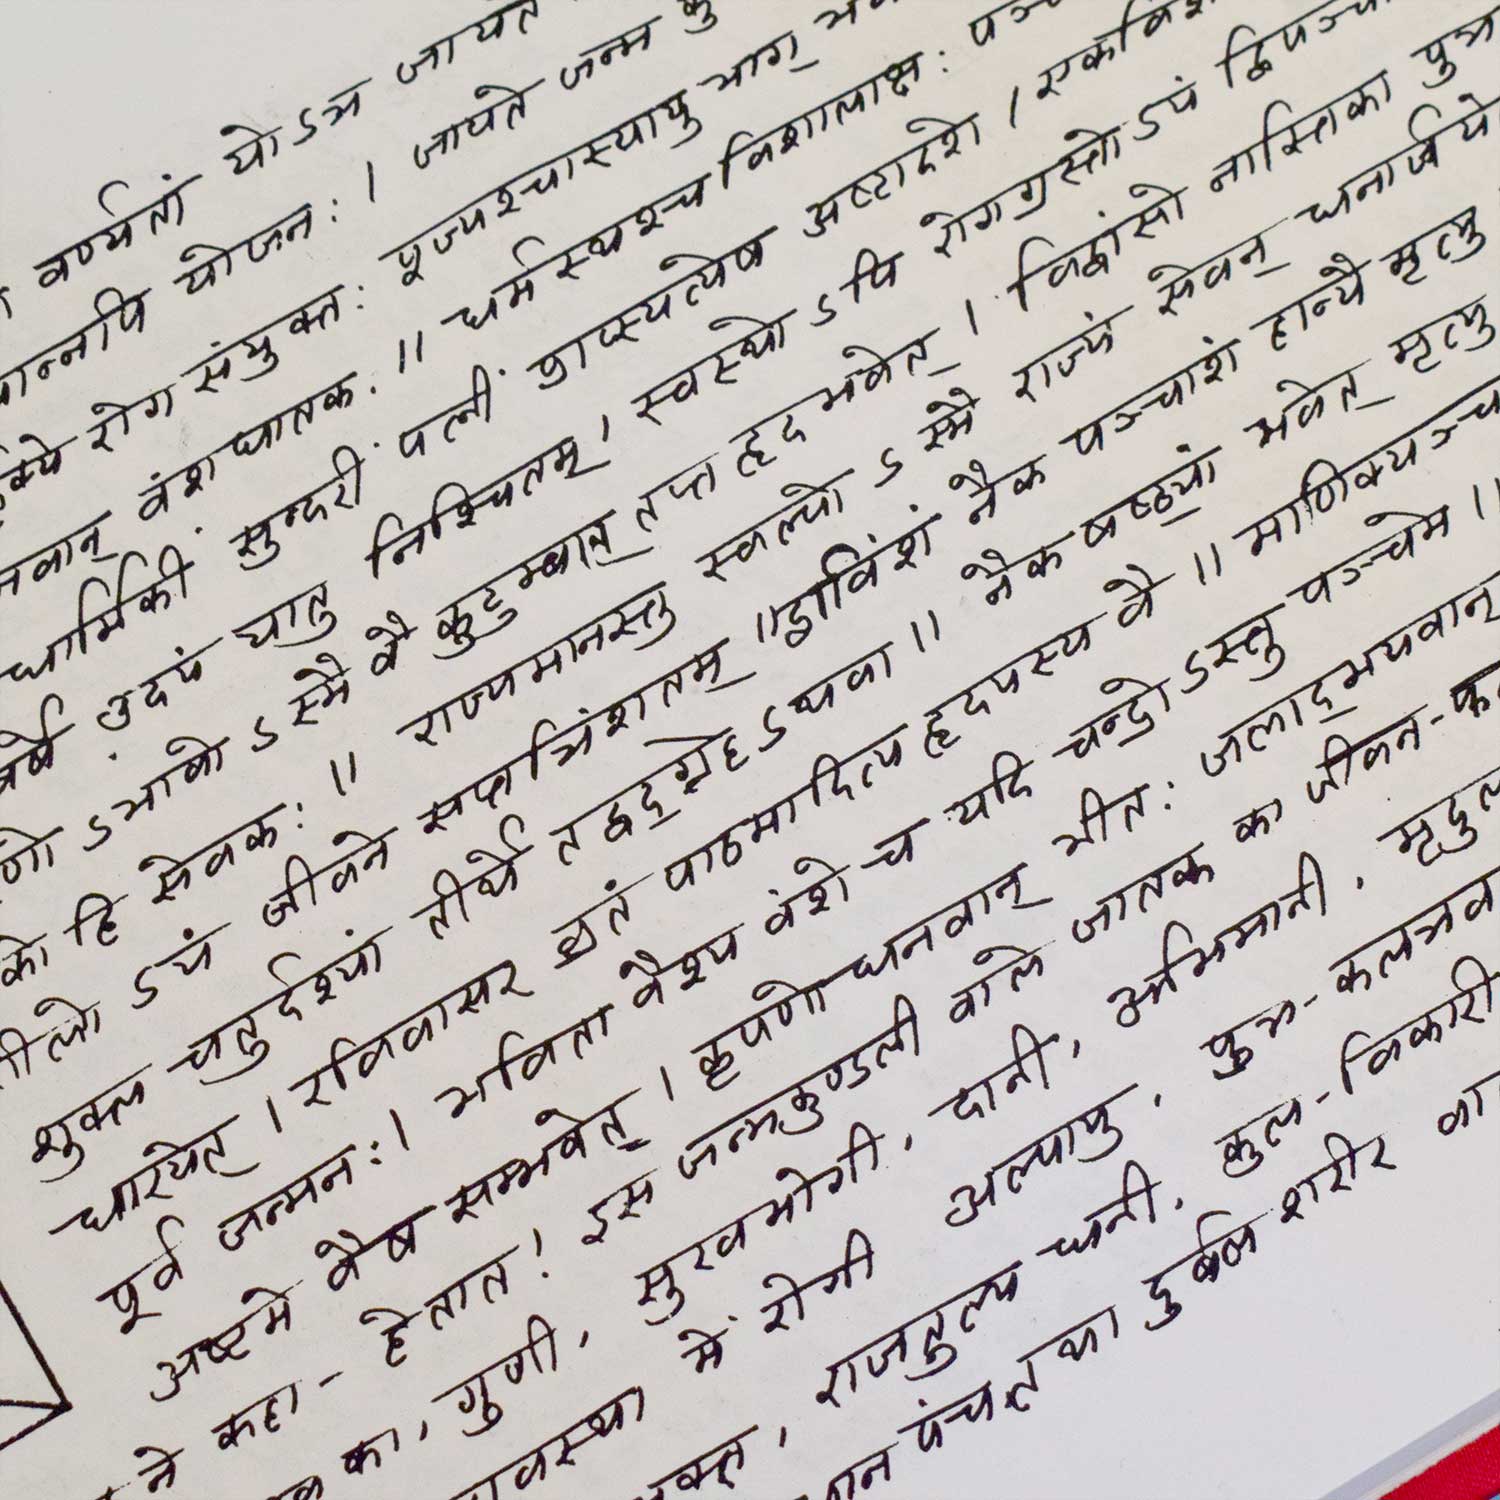 वर्ण्यतां योऽत्र जायते
योजनः । जायते जन्म
रोग संयुक्तः पूज्यश्चास्यायु भाग्
वंश घातकः ॥ धर्मस्थश्च विशालाक्षः
धार्मिकी सुन्दरी पत्नीं प्राप्स्यत्येष अष्टादशे । एकविंश
वर्षे उदयं यातु निश्चितम् । स्वस्थोऽपि रोगग्रस्तोऽयं द्विपञ्चा
ऽभावोऽस्मै वै कुटुम्बात् तप्त हृद भवेत् । विद्वांसो नास्तिका पुत्र
को हि सेवकः ॥ राज्यमानस्तु स्वल्पोऽस्मै राज्यं सेवन् धनार्जये
ऽयं जीवने सप्तत्रिंशतम् ॥ द्वाविंशं नैक पञ्चाशं हान्यै मृत्यु
शुक्ल चतुर्दश्यां तीर्थे तद्वद्ग्रहेऽथवा ॥ नैक षष्ठ्यां भवेत् मृत्यु
धारयेत् । रविवासर व्रतं पाठमादित्य हृदयस्य वै ॥ माणिक्यञ्च
पूर्व जन्मनः । भविता वैश्य वंशे च यदि चन्द्रोऽस्तु पञ्चमे ॥
अष्टमे वैष सम्भवेत् । कृपणो धनवान् भीतः जलाद् भयवान्
ने कहा- हे तात! इस जन्मकुण्डली वाले जातक का जीवन-फल
का, गुणी, सुखभोगी, दानी, अभिमानी, मृदुल
में रोगी अल्पायु, पुत्र-कलत्रव
राजतुल्य धनी, कुल-विकारी
पंचत् तथा दुर्बल शरीर वा